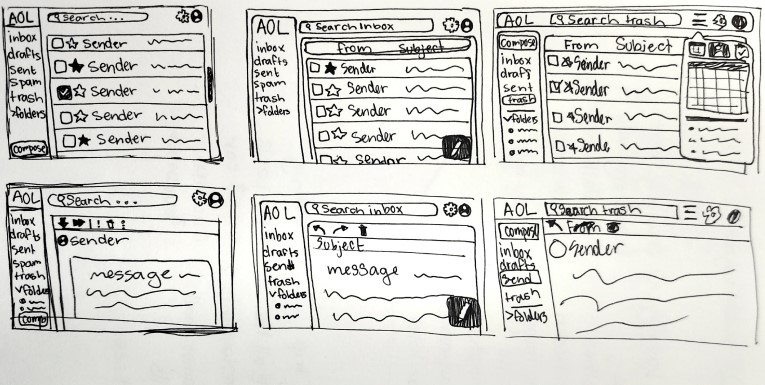 AOL
Search ...
inbox
drafts
sent
spam
trash
>folders
compose
Sender
Sender
Sender
Sender
Sender
AOL
Search Inbox
inbox
drafts
sent
spam
trash
>folders
From Subject
Sender
Sender
Sender
Sender
Sender
AOL
Search trash
compose
inbox
draft
sent
trash
folders
From Subject
Sender
Sender
Sender
Sende
AOL
Search ...
inbox
drafts
sent
spam
trash
folders
compo
sender
message
AOL
Search inbox
inbox
drafts
send
trash
folders
Subject
message
AOL
Search trash
compose
inbox
drafts
Send
trash
>folders
Sender